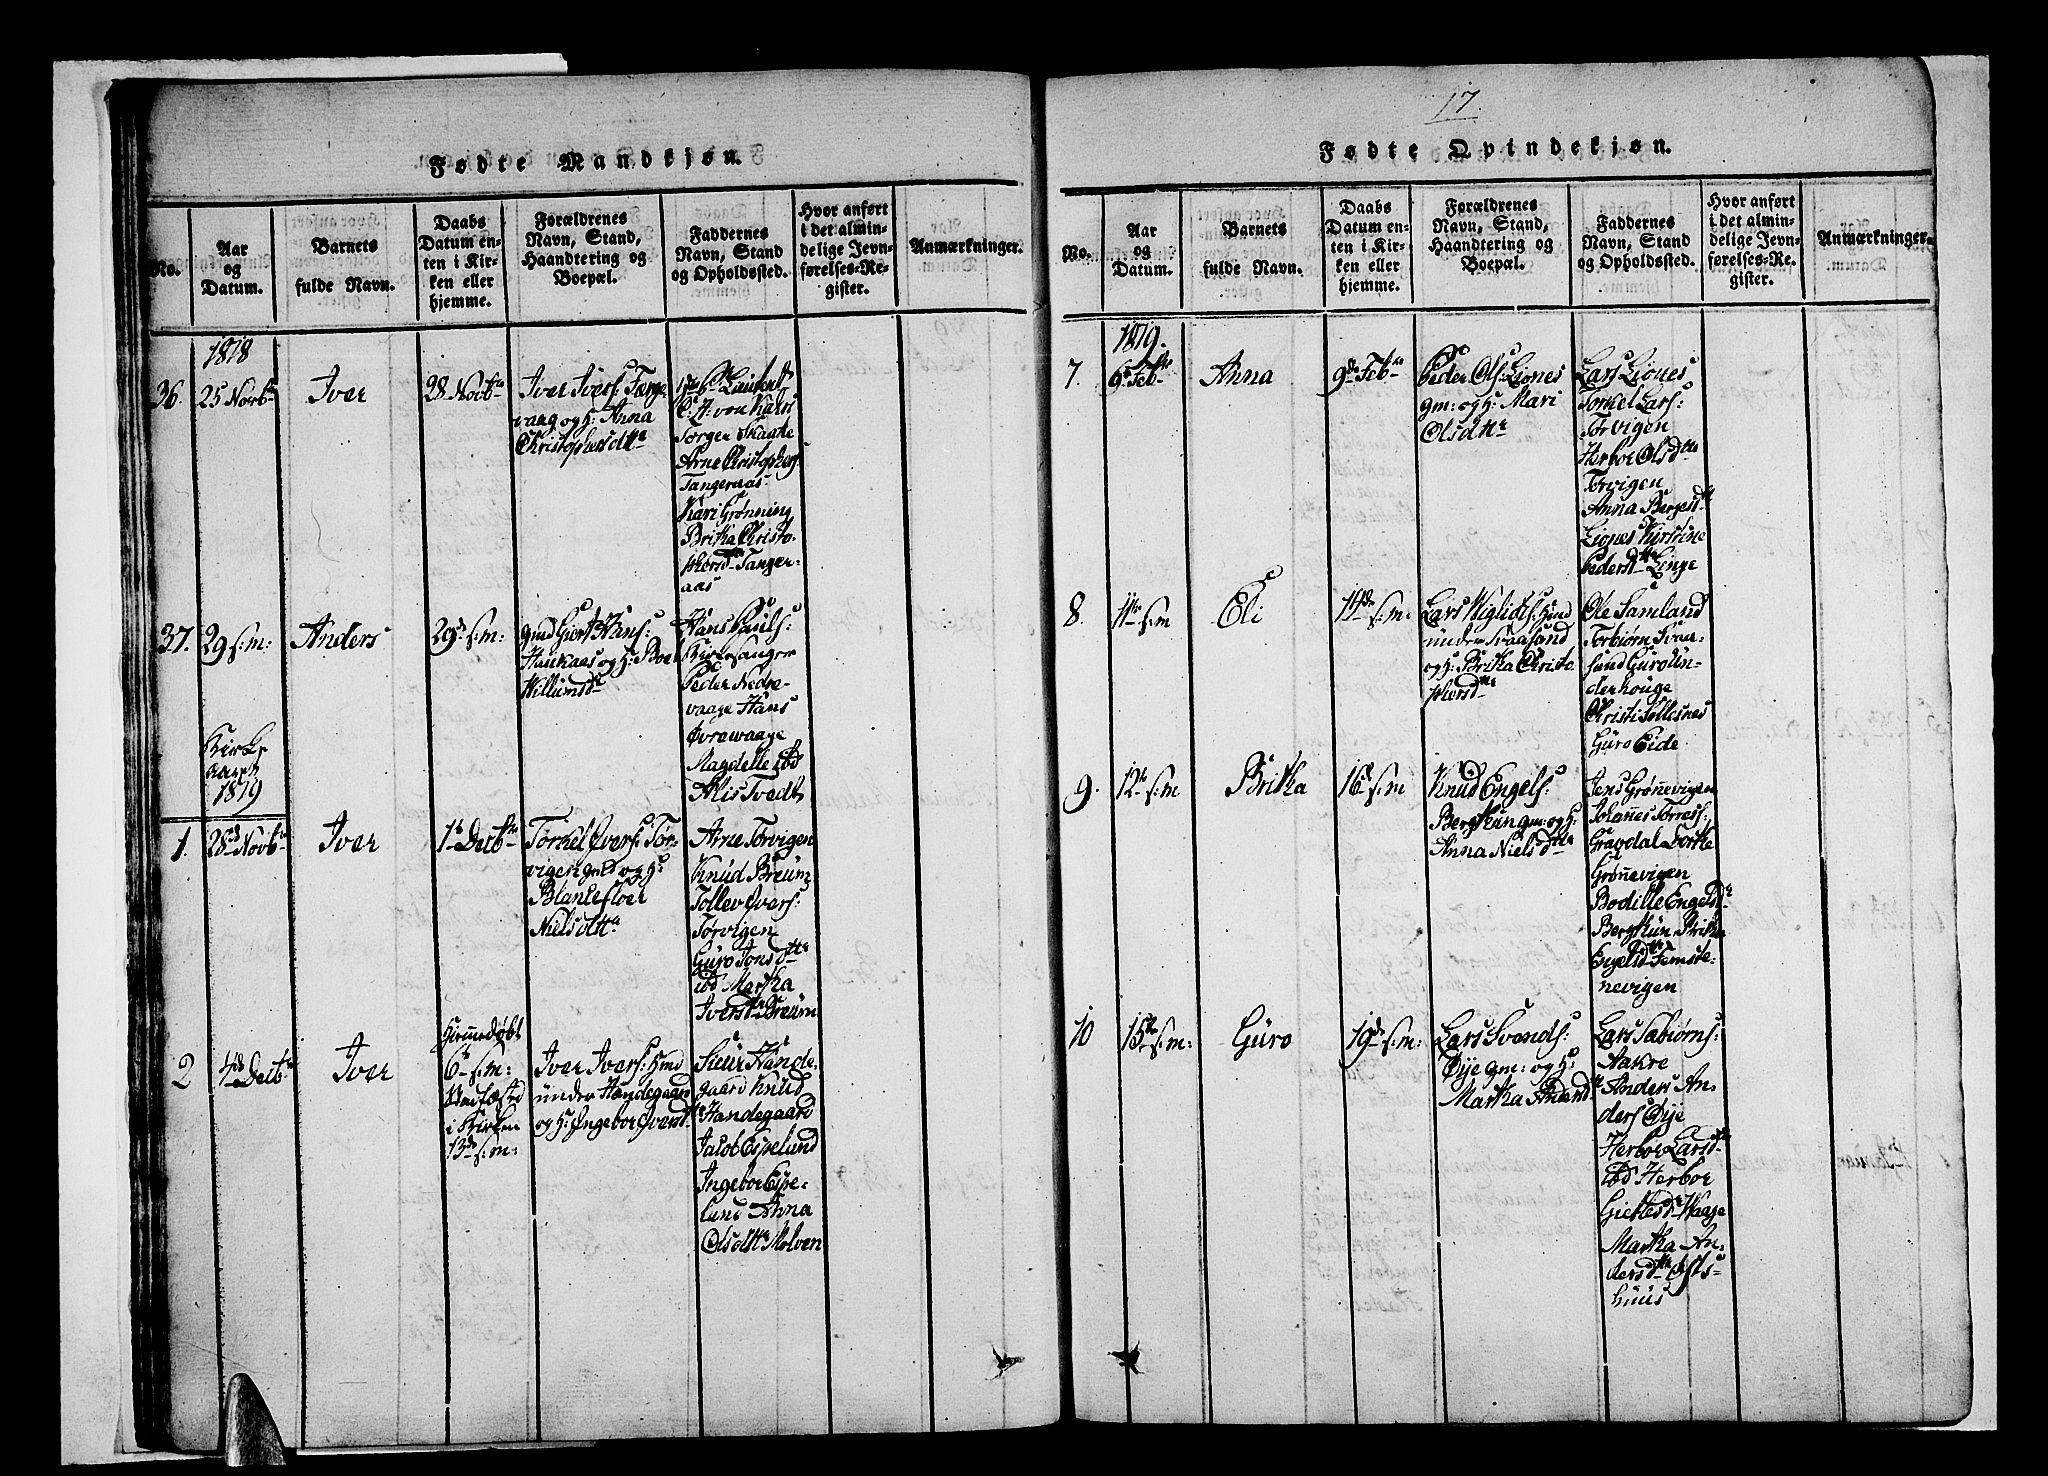 17
Fødte Mandkjøn.
No.
Aar
og
Datum.
Barnets
fulde Navn.
Daabs
Datum en-
ten i Kir-
ken eller
hjemme.
Forældrenes
Navn, Stand,
Haandtering og
Boepæl.
Faddernes
Navn, Stand
og Opholdssted.
Hvor anført
i det almin-
delige Jevn-
førelses-Re-
gister.
Anmærkninger.
1818
36.
25 Novbr
Iver
28 Novbr
Iver Ivers: Tange-
vaag og H: Anna
Christophersdttr
Torger Skaate
Arne Christophers:
Tangeraas
Kari Grønning
Britha Christo-
phersd Tanger-
aas
37.
29 s: m:
Anders
29d s: m:
gmd Giert Hans:
Haukaas og H: Boel
Willumsdr
Hans Pauls:
Kirkesanger
Peder Nedre-
vaage Hans
Øvrewaage
Magdelle ibd
Alis Tvedt
Kirke
Aaret
1819
1.
28d Novbr
Iver
1t Decbr
Torkel Ivers: Tor-
vigen gmd og H:
Blancefloer
Nielsdttr
Arne Torvigen
Knud Breum
Tollev Ivers:
Torvigen
Guro Jonsdttr
ibd Martha
Iversdtr Breum
2
4de Decbr
Iver
Hjemmedøbt
6t s: m:
Stadfæsted
i Kirken
13de s: m:
Iver Ivers: Hmd
under Handegaard
og H: Ingebor Iversd
Siur Hande-
gaard Knud
Handegaard
Jacob Espelund
Ingebor Espe-
lund Anna
Olsdttr Molven
Fødte Qvindekjøn.
No.
Aar
og
Datum.
Barnets
fulde Navn.
Daabs
Datum en-
ten i Kir-
ken eller
hjemme.
Forældrenes
Navn, Stand,
Haandtering og
Boepæl.
Faddernes
Navn, Stand
og Opholdssted.
Hvor anført
i det almin-
delige Jevn-
førelses-Re-
gister.
Anmærkninger.
1819.
7.
9de Febr
Anna
9de Febr
Peder Ols: Liones
gm: og H: Mari
Olsdttr
Lars Liones
Torkel Lars:
Torvigen
Herbor Olsdtr
Torvigen
Anna Bergesdtr
Liones Kirstine
Pedersdtr Linge
8.
11te s: m
Eli
14de s: m:
Lars Wiglidts: Hmd
under Svaasand
og H: Britha Christo-
phersdtr
Ole Samland
Torbiørn Svaa-
sund Guro Un-
derhouge
Christi Sollesnes
Guro Eide
9.
12te s: m
Britha
16d s: m
Knud Engels:
Bergstun gm: og H:
Anna Nielsdtr
Jens Grønnevigen
Johannes Torres:
Gravdal Dorthe
Grønnevigen
Bodille Engelsdr
Bergstun Britha
Engelsdtr Femste-
nevigen
10
15de s: m:
Guro
19de s: m:
Lars Svends:
Øye gm: og H:
Martha Andersdtr
Lars Sabiørns:
Aakre
Anders An-
ders Øye
Herbor Larsdtr
ibd Herbor
Giertlesdtr Waage
Martha An-
dersdtr Ofts-
huus